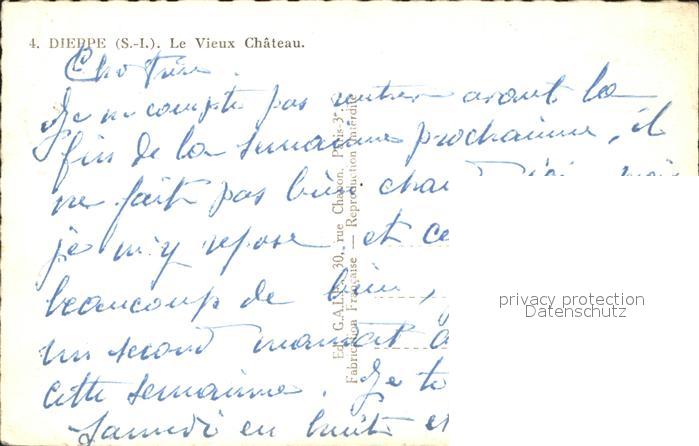 4. DIEPPE (S.-I.). Le Vieux Château.
Je ne compte pas rentrer avant la
fin de la semaine prochaine, il
ne fait pas bien chaud ici, mais
je m'y repose et ce
beaucoup de bien,
un second mandat
cette semaine. Je te
Samedi en huit et
Edit. G.A.L.F., 30, rue Chapon, Paris-3e
Fabrication Française — Reproduction interdite
privacy protection
Datenschutz